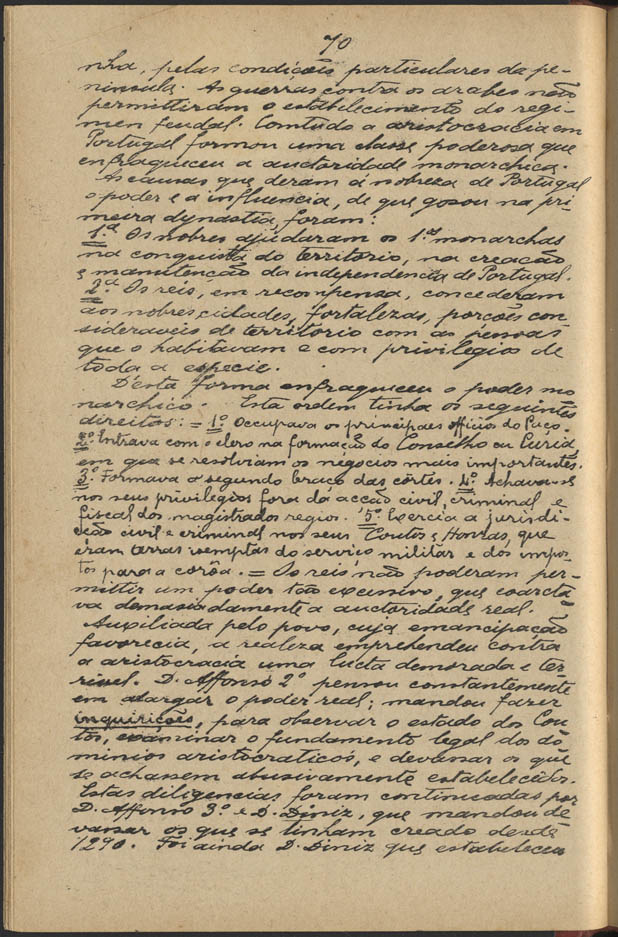 70
nha, pelas condições particulares da pe-
ninsula. As guerras contra os arabes não
permittiram o estabelecimento do regi-
men feudal. Comtudo a aristocracia em
Portugal formou uma classe poderosa que
enfraqueceu a auctoridade monarchica.
As causas que deram á nobreza de Portugal
o poder e a influencia, de que gosou na pri-
meira dynastia, foram:
1.ª Os nobres ajudaram os 1.os monarchas
na conquista do territorio, na creação
e manutenção da independencia de Portugal.
2.ª Os reis, em recompensa, concederam
aos nobres cidades, fortalezas, porções con-
sideraveis de territorio com as pessoas
que o habitavam e com privilegios de
toda a especie.
D'esta forma enfraqueceu o poder mo
narchico. Esta ordem tinha os seguintes
direitos: = 1.º Occupava os principaes officios do Paço.
2.º Entrava com o clero na formação do Conselho ou Curia,
em que se resolviam os negocios mais importantes.
3.º Formava o segundo braço das côrtes. 4.º Achava-se
nos seus privilegios fora da acção civil, criminal e
fiscal dos magistrados regios. 5.º Exercia a jurisdi-
cção civil e criminal nos seus Coutos e Honras, que
eram terras isemptas do serviço militar e dos impos-
tos para a corôa. = Os reis não poderam per-
mittir um poder tão excessivo, que coarcta
va demasiadamente a auctoridade real.
Auxiliada pelo povo, cuja emancipação
favorecia, a realeza emprehendeu contra
a aristocracia uma lucta demorada e ter-
rivel. D. Affonso 2.º pensou constantemente
em alargar o poder real; mandou fazer
inquirições, para observar o estado dos Cou
tos, examinar o fundamento legal dos do
minios aristocraticos, e devassar os que
se achassem abusivamente estabelecidos.
Estas diligencias foram continuadas por
D. Affonso 3.º e D. Diniz, que mandou de
vassar os que se tinham creado desde
1290. Foi ainda D. Diniz que estabeleceu